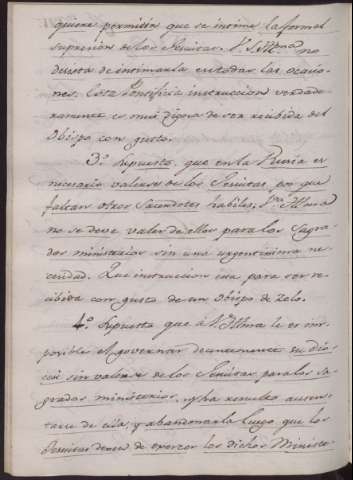 quiere permitir que se intime la formal
supresion de los Jesuitas. V.S. Illma no
desista de intimarla en todas las ocasio
nes. Esta Pontificia instruccion verdade
ramente es mui digna de ser recibida del
Obispo con gusto.
3.º Supuesto, que en la Rusia es
necesario valerse de los Jesuitas, por que
faltan otros Sacerdotes habiles, Vra Illma
no se deve valer de ellos para los Sagra-
dos ministerios sin una urgentisima ne
cesidad. Que instruccion esta para ser re
cibida con gusto de un Obispo de zelo.
4.º Supuesto que á V. Illma le es im
posible el governar decentemente su Dio
cesi sin valerse de los Jesuitas para los sa
grados ministerios, y ha resuelto ausen
tarse de ella, y abandonarla luego que los
Jesuitas dexen de exercer los dichos Ministe-